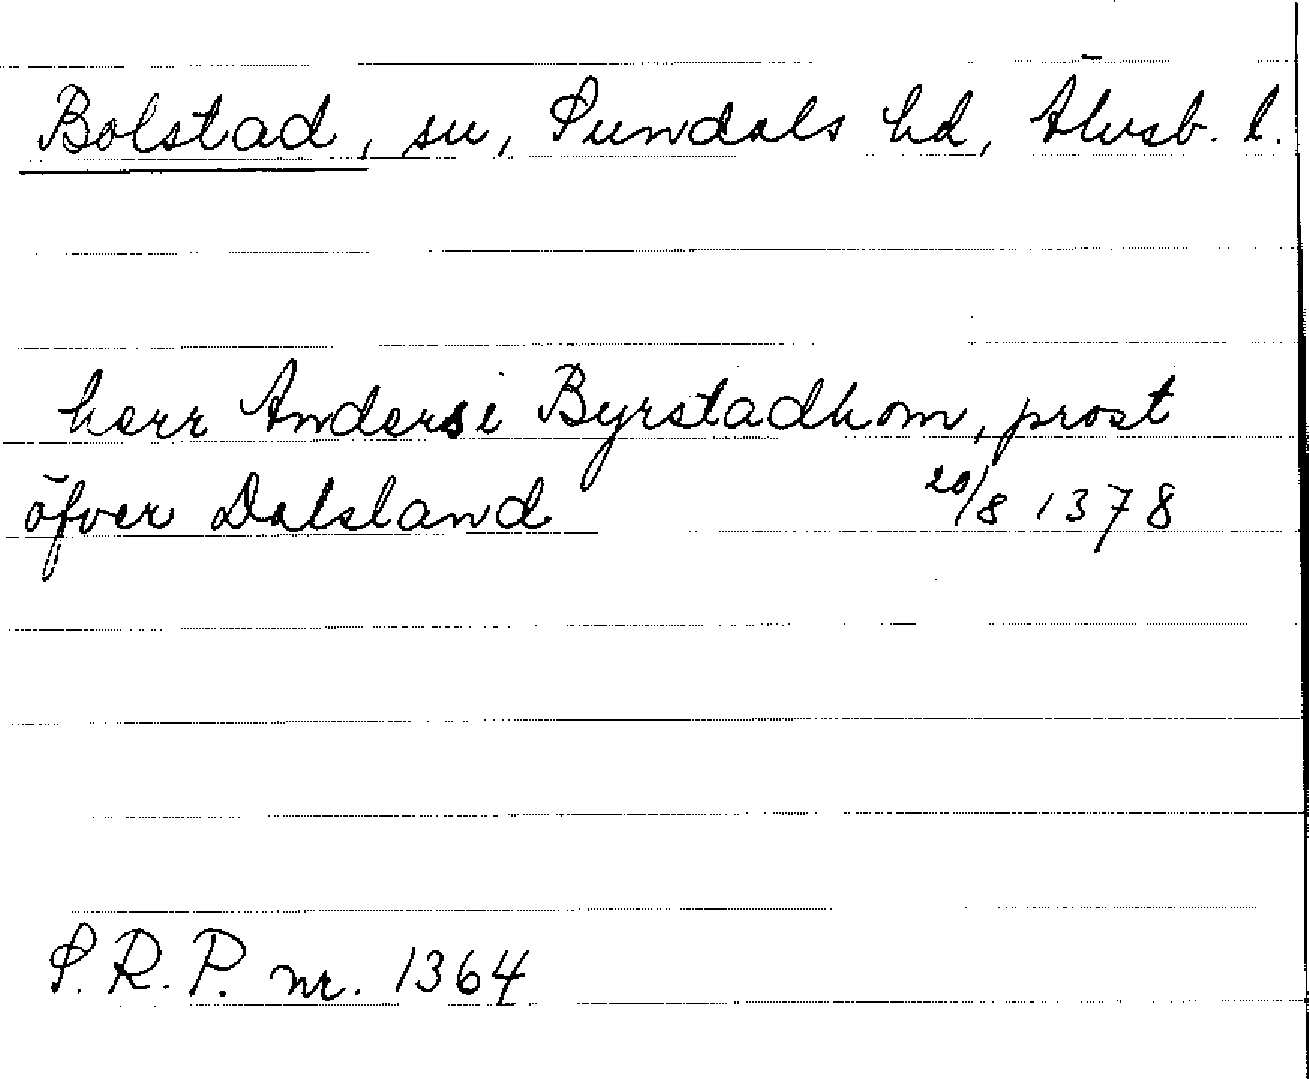 Bolstad, sn, Sundals hd, Älvsb. l.
herr Anders i Byrstadhom, prost
öfver Dalsland 20/8 1378
S.R.P. nr. 1364